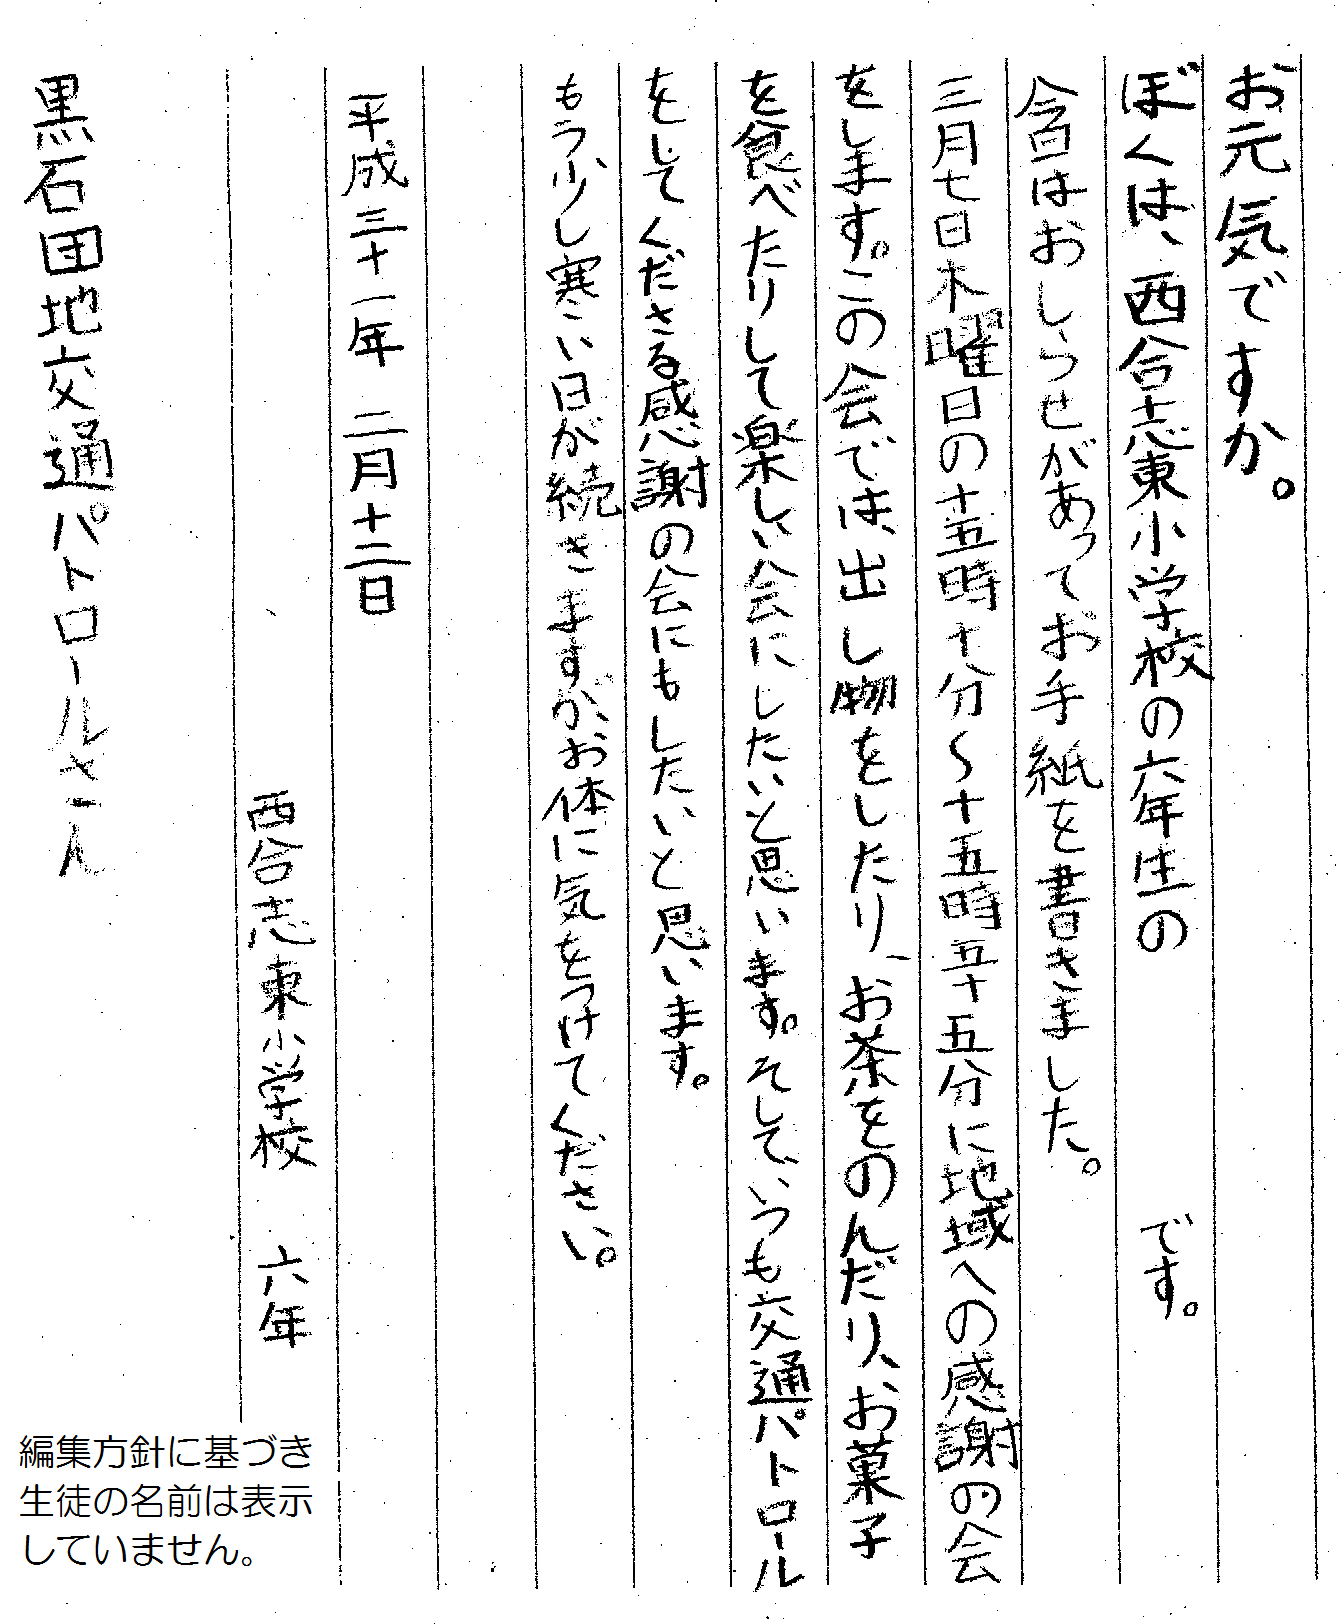 お元気ですか。
ぼくは、西合志東小学校の六年生の　です。
今回はおしらせがあってお手紙を書きました。
三月七日木曜日の十五時十分～十五時五十五分に地域への感謝の会
をします。この会では、出し物をしたり、お茶をのんだり、お菓子
を食べたりして楽しい会にしたいと思います。そして、いつも交通パトロール
をしてくださる感謝の会にもしたいと思います。
もう少し寒い日が続きますが、お体に気をつけてください。
平成三十一年　二月十二日
西合志東小学校　六年
黒石団地交通パトロールさん
編集方針に基づき
生徒の名前は表示
していません。